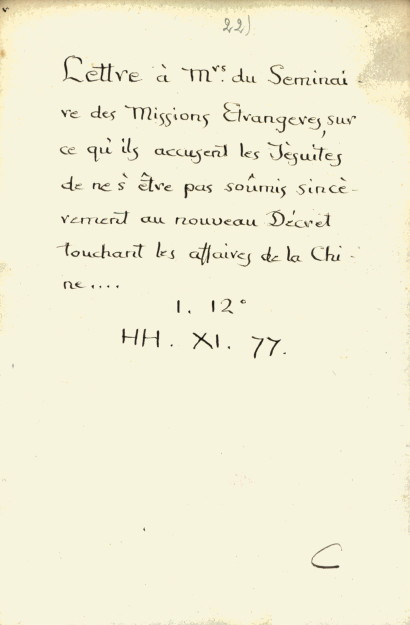 22)
Lettre à Mrs. du Seminai-
re des Missions Etrangeres, sur
ce qu'ils accusent les Jèsuites
de ne s'être pas soûmis sincè-
rement au nouveau Décret
touchant les affaires de la Chi-
ne....
1. 12°
HH. XI. 77.
C